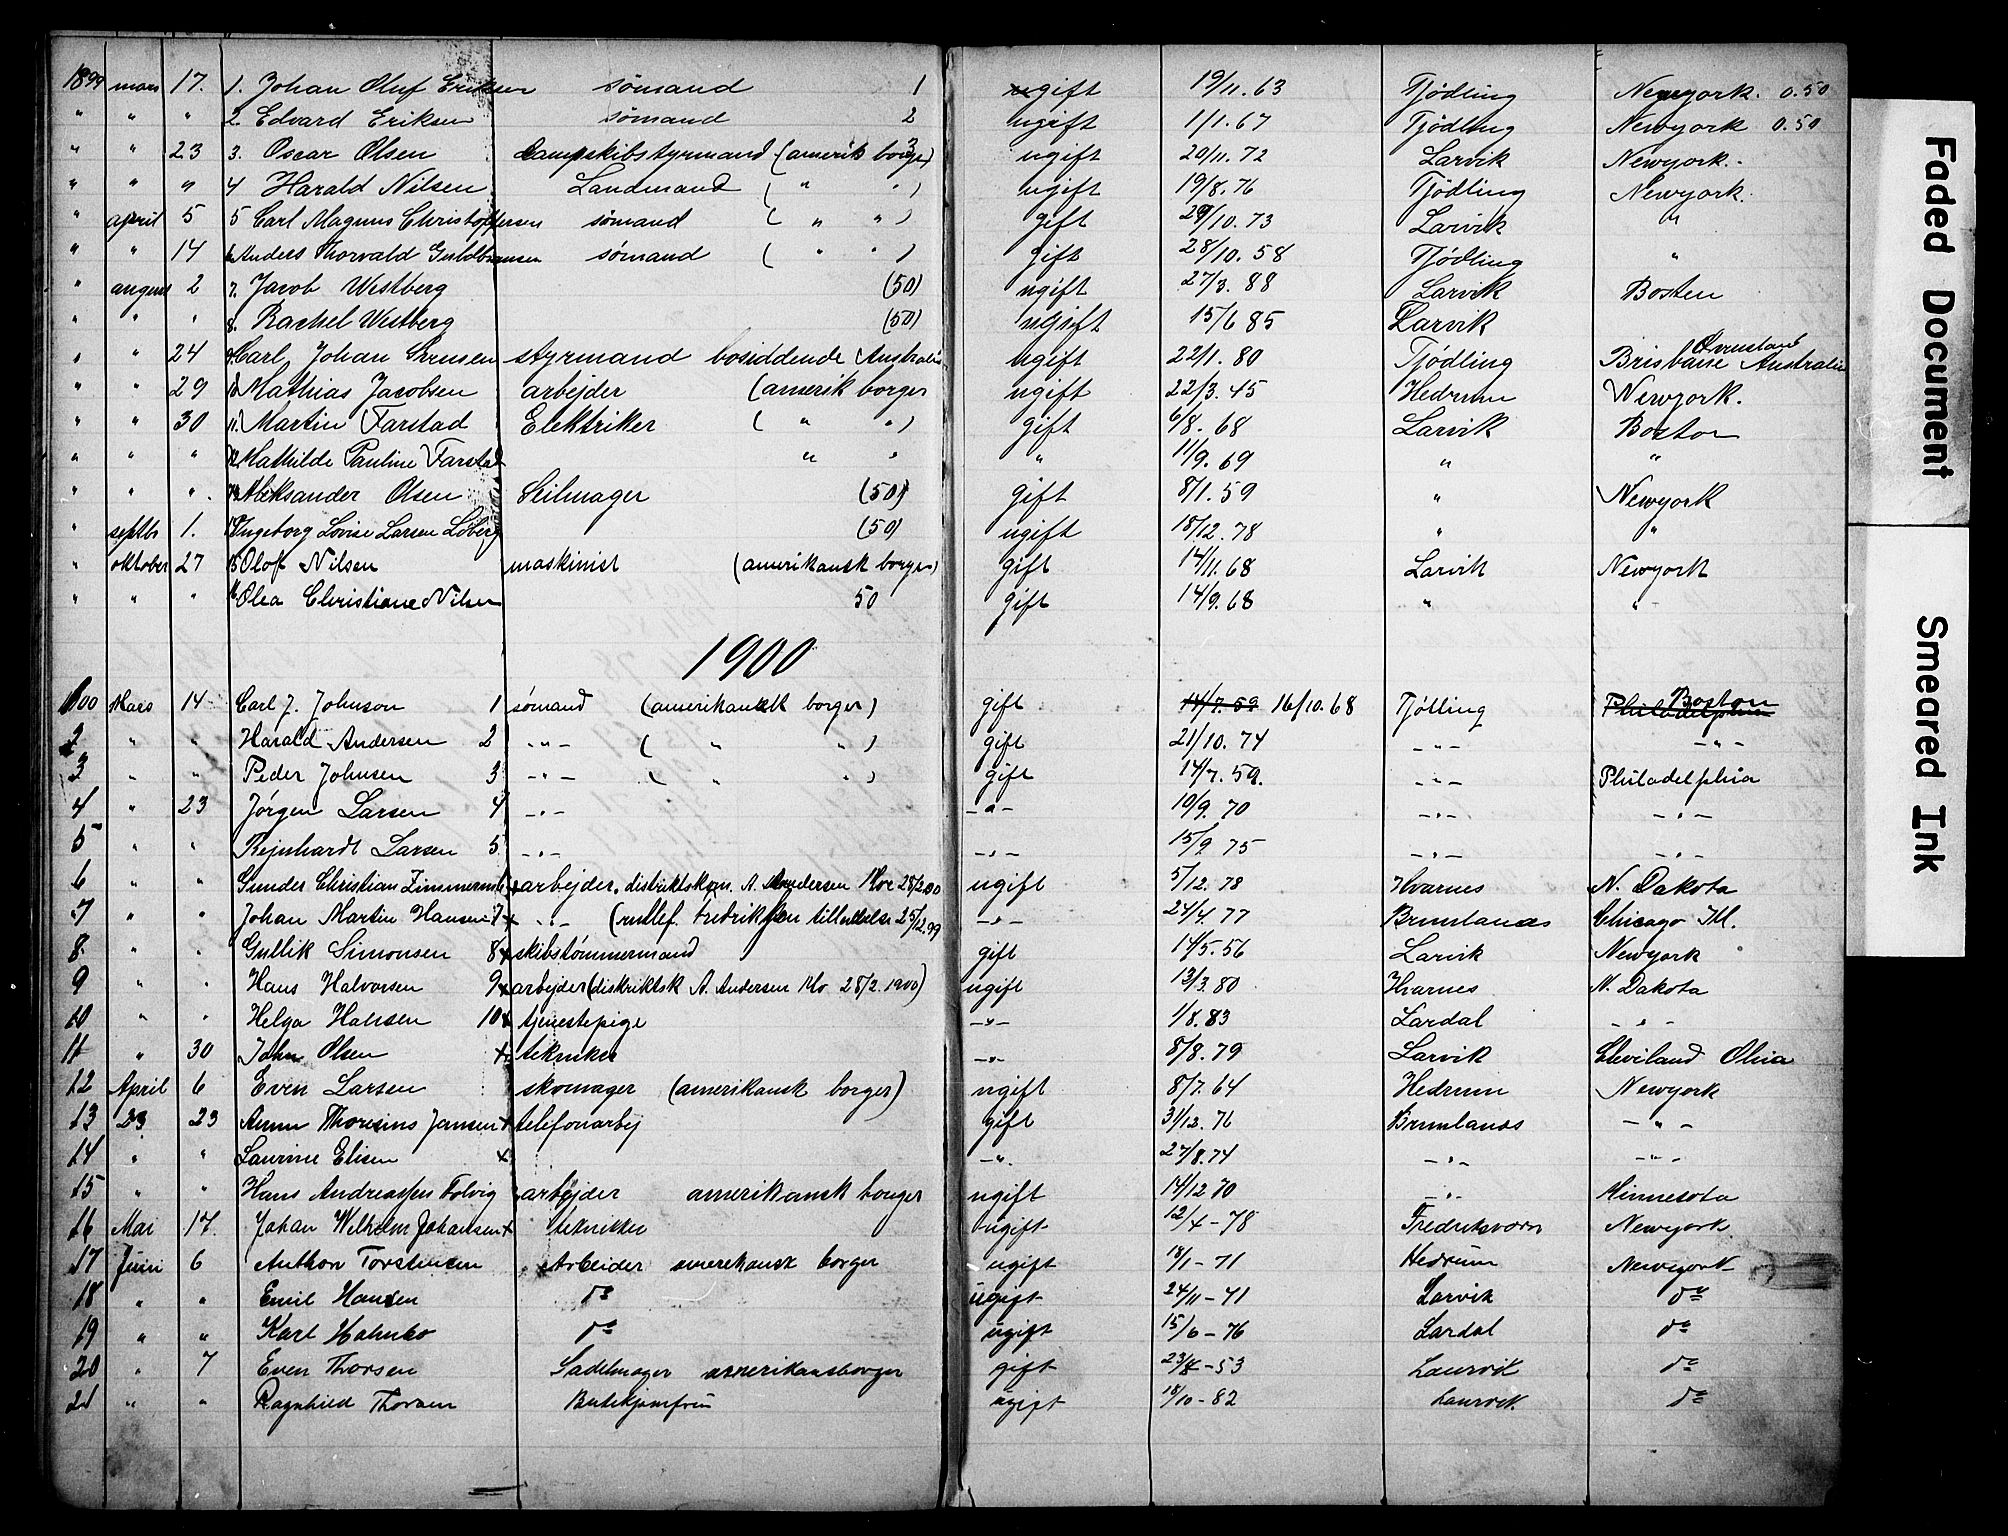 1899 mars 17. 1. Johan Oluf Eriksen sømand 1 ugift 19/11. 63 Tjødling Newyork. 0.50
" " " 2. Edvard Eriksen sømand 2 ugift 1/1. 67 Tjødling Newyork 0.50
" " 23 3. Oscar Olsen Dampskibstyrmand (amerik borger) 3 ugift 20/11. 72 Larvik Newyork.
" " " 4 Harald Nilsen Landmand ( " " ) ugift 19/8. 76 Tjødling Newyork.
" april 5 5 Carl Magnus Christophersen sømand ( " " ) gift 29/10. 73 Larvik "
" " 14 6 Anders Thorvald Guldbransen sømand ( " " ) gift 28/10. 58 Tjødling "
" august 2 7. Jacob Westberg (50) ugift 27/3. 88 Larvik Boston
" " " 8. Rachel Westberg (50) ugift 15/6 85 Larvik
" " 24 9 Carl Johan Sørensen styrmand bosiddende Australien ugift 22/1. 80 Tjødling Brisbane Australien
" " 29 10 Mathias Jacobsen arbejder (amerik borger ugift 22/3. 45 Hedrum Newyork.
" " 30 11 Martin Farstad Elektriker ( " " ) gift 6/8. 68 Larvik Boston
" " " 12 Mathilde Pauline Farstad " " " 11/9. 69 " "
" " " 13 Aleksander Olsen Seilmager (50) gift 8/1. 59 " Newyork
" septbr 1. 14 Ingeborg Lovise Larsen Løberg (50) ugift 18/12. 78 " "
" oktober 27 15 Olof Nilsen maskinist (amerikansk borger) gift 14/11. 68 Larvik Newyork
" " " 16 Olea Christiane Nilsen 50 gift 14/9. 68 " "
1900
1900 Mars 14 Carl J. Johnson 1 sømand (amerikansk borger) gift 14/7. 59 16/10. 68 Tjølling Philadelphia Boston
2 " " Harald Andersen 2 - " - ( " " ) gift 21/10. 74 - " - - " -
3 " " Peder Johnsen 3 - " - ( " " ) gift 14/7. 59. - " - Philadelphia
4 " 23 Jørgen Larsen 4 - " - - " - 10/9. 70 - " - - " -
5 " " Rejnhardt Larsen 5 - " - - " - 15/9 75 - " - - " -
6 " " Gunder Christian Zimmerm 6 + arbejder. distriktskom. A. Andersen Moe 28/2.00 ugift 5/12. 78 Hvarnes N. Dakota
7 " " Johan Martin Hansen 7 + - " - (rullef. Fredriks tilladelse 25/12.99 - " - 24/4. 77 Brunlanæs Chicago Ill.
8. " " Gullik Simonsen 8 + skibstømmermand gift 14/5. 56 Larvik Newyork
9 " " Hans Halvorsen 9 + arbejder (distriktsk A. Andersen Mo 28/2. 1900) ugift 13/3. 80 Hvarnes N. Dakota
10 " " Helga Hansen 10 + tjenestepige - " - 1/8. 83 Lardal - " -
11 " 30 John Olsen + tekniker - " - 8/8. 79 Larvik Cleviland Ohio
12 April 6 Even Larsen skomager (amerikansk borger) ugift 8/7. 64 Hedrum Newyork
13 23 23 Anun Thorsins Jansen + telefonarbej gift 31/12. 76 Brunlanæs - " -
14 " " Laurine Elisen + - " - 27/8. 74 - " - - " -
15 " " Hans Andreassen Tolvig arbejder amerikansk borger ugift 14/12 70 - " - Minnesota
16 Mai 17. Johan Wilhelm Johansen + tekniker ugift 12/4 - 78 Fredriksværn Newyork
17 Juni 6 Anthon Torstensen Arbeider amerikansk borger ugift 18/1 - 71 Hedrum Newyork
18 " " Emil Hansen do ugift 24/11 - 71 Larvik do
19 " " Karl Hahnbo do ugift 15/6 - 76 Lardal do
20 " 7 Even Thorsen Sadelmager amerikansborger gift 23/8 - 53 Laurvik do
21 " " Ragnhild Thorsen Butikjomfru ugift 18/10 - 82 Laurvik. do
Faded Document
Smeared Ink